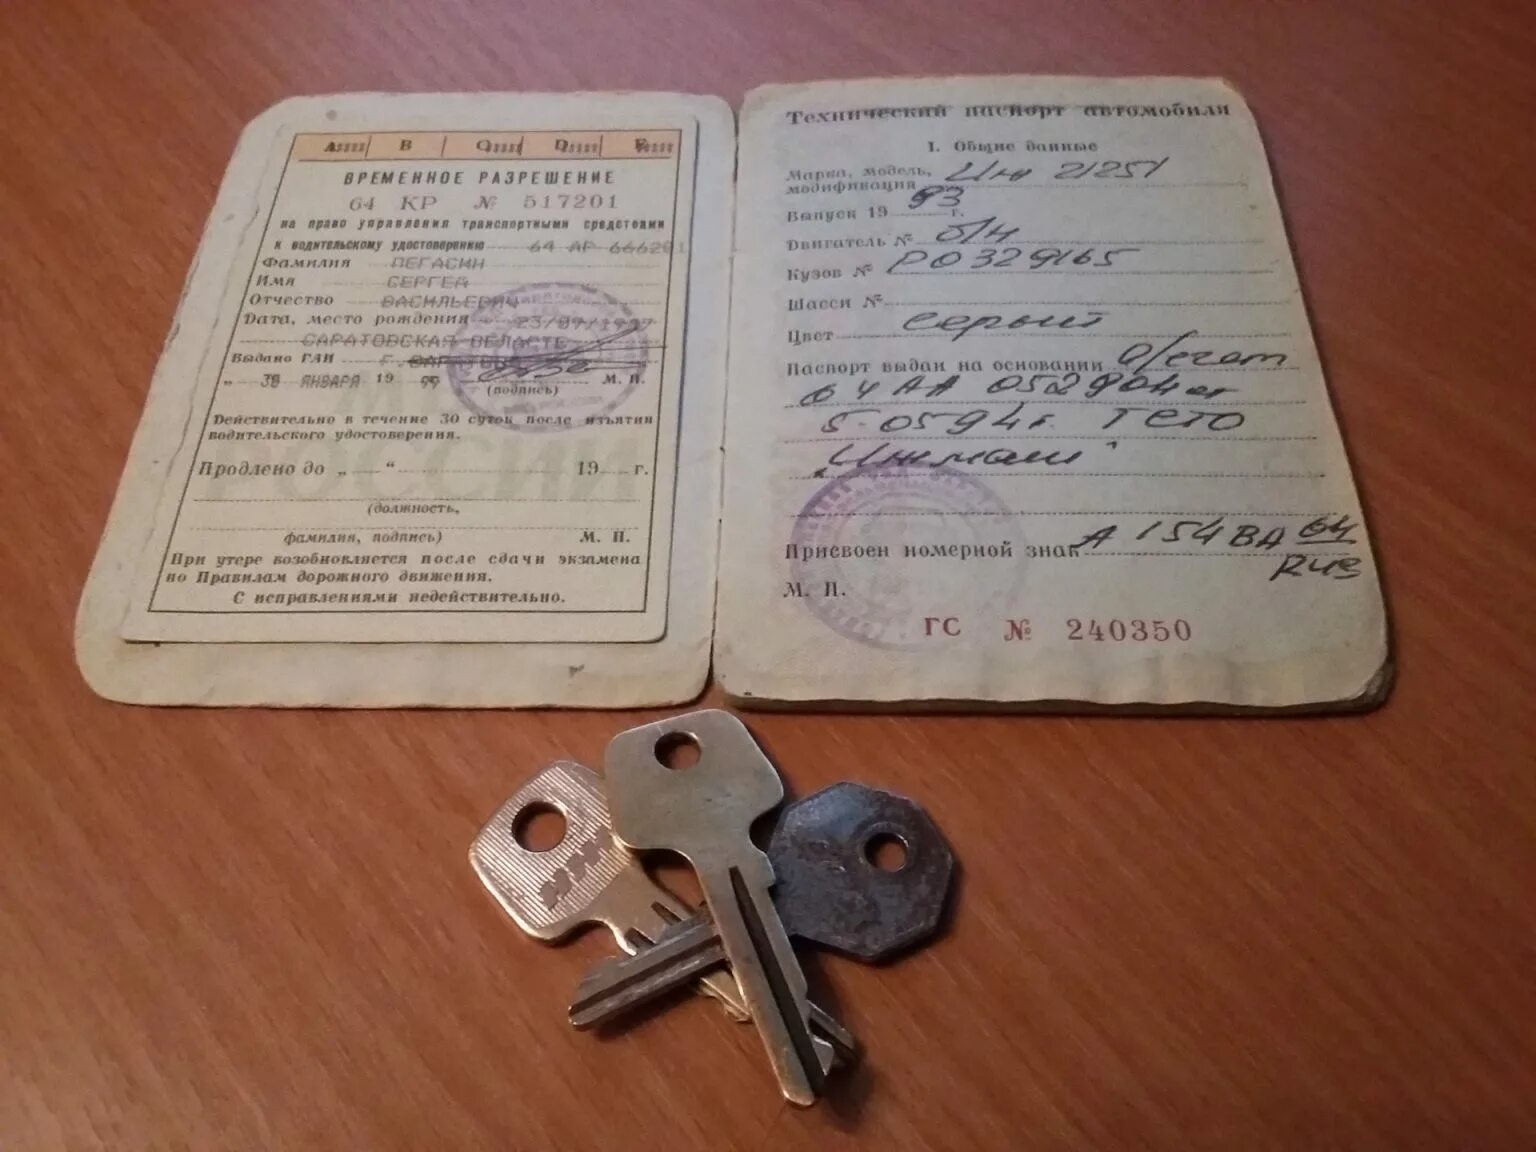 А B С D Е
ВРЕМЕННОЕ РАЗРЕШЕНИЕ
64 КР № 517201
на право управления транспортными средствами
к водительскому удостоверению 64 АР 666201
Фамилия ПЕГАСИН
Имя СЕРГЕЙ
Отчество ВАСИЛЬЕВИЧ
Дата, место рождения
САРАТОВСКАЯ ОБЛАСТЬ
Выдано ГАИ Г. САРАТОВ
„ 30 ЯНВАРЯ 19 99 М. П.
(подпись)
Действительно в течение 30 суток после изъятия
водительского удостоверения.
Продлено до „ “ 19 г.
(должность,
фамилия, подпись) М. П.
При утере возобновляется после сдачи экзамена
по Правилам дорожного движения.
С исправлениями недействительно.
РОССИИ
Технический паспорт автомобиля
I. Общие данные
Марка, модель, Иж 21251
модификация
Выпуск 19 93 г.
Двигатель № б/н
Кузов № РО329165
Шасси №
Цвет серый
Паспорт выдан на основании с/счет
64 АА 052904 от
5-05 94 г.
„Ижмаш“
Присвоен номерной знак А 154 ВА 64
RUS
М. П.
ГС № 240350